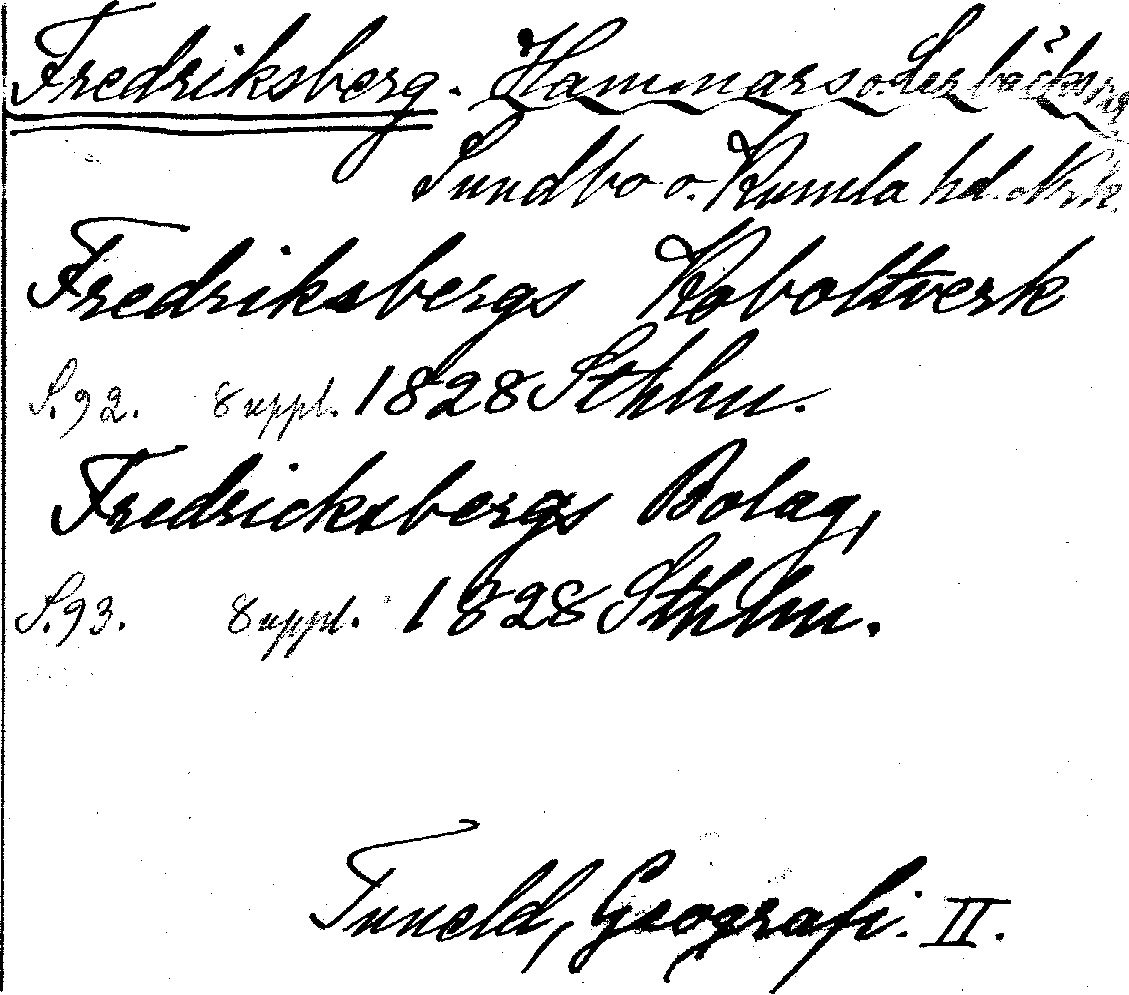 Fredriksberg. Hammars o. Lerbäcks sn
Sundbo o. Kumla hd. Nrk.
Fredriksbergs Koboltverk
S. 92. Suppl. 1828 Sthlm.
Fredricksbergs Bolag,
S. 93. Suppl. 1828 Sthlm.
Tuneld, Geografi. II.